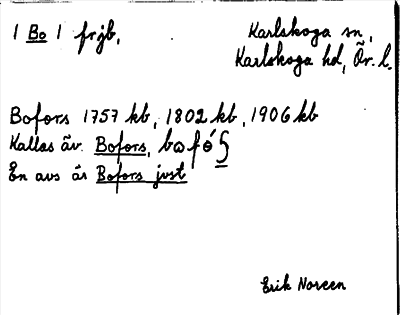 1 Bo 1 frjb, Karlskoga sn,
Karlskoga hd, Ör. l.
Bofors 1757 kb, 1802 kb, 1906 kb
Kallas äv. Bofors,
En avs är Bofors just
Erik Noreen